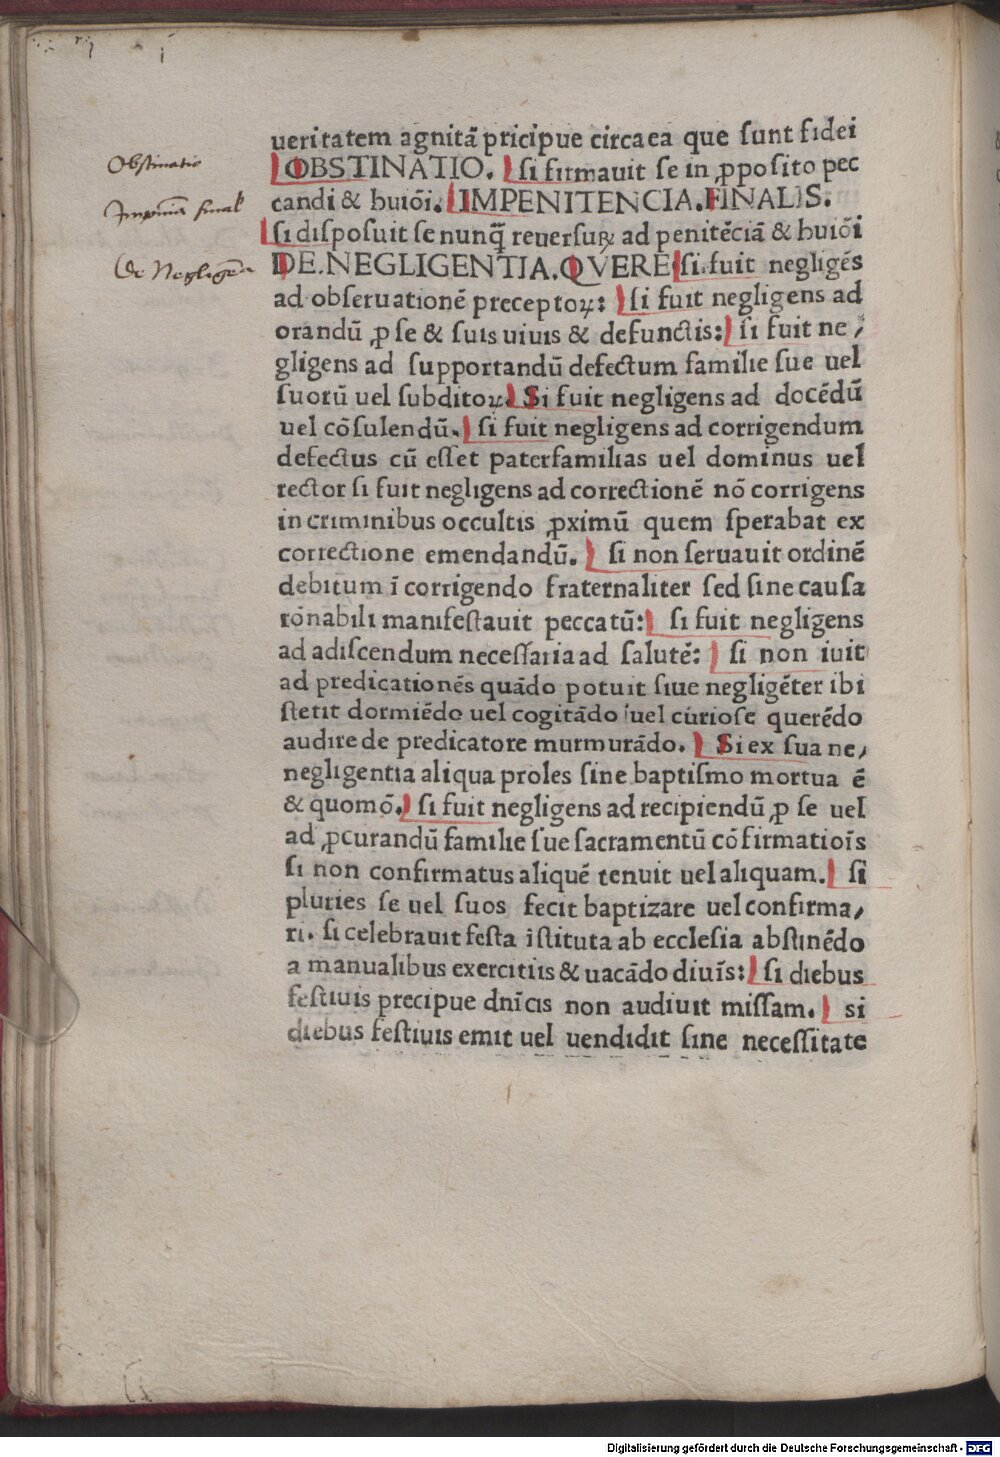 ueritatem agnitā pricipue circa ea que ſunt fidei
Obſtinatio
OBSTINATIO. ſi firmauit ſe in ꝓpoſito pec
candi & huiōi. IMPENITENCIA. FINALIS.
Impenitēa final
ſi diſpoſuit ſe nunq̄ reuerſuꝝ ad penitēciā & huiōi
De Negligēa
DE. NEGLIGENTIA. QVERE ſi. fuit negligēs
ad obſeruationē preceptoꝝ: ſi fuit negligens ad
orandū ꝓ ſe & ſuis uiuis & defunctis: ſi fuit ne,
gligens ad ſupportandū defectum familie ſue uel
ſuorū uel ſubditoꝝ. Si fuit negligens ad docēdū
uel cōſulendū. ſi fuit negligens ad corrigendum
defectus cū eſſet paterfamilias uel dominus uel
rector ſi fuit negligens ad correctionē nō corrigens
in criminibus occultis ꝓximū quem ſperabat ex
correctione emendandū. ſi non ſeruauit ordinē
debitum ī corrigendo fraternaliter ſed ſine cauſa
rōnabili manifeſtauit peccatū: ſi fuit negligens
ad adiſcendum neceſſaria ad ſalutē: ſi non iuit
ad predicationēs quādo potuit ſiue negligēter ibi
ſtetit dormiēdo uel cogitādo uel curioſe querēdo
audire de predicatore murmurādo. Si ex ſua ne,
negligentia aliqua proles ſine baptiſmo mortua ē
& quomō. ſi fuit negligens ad recipiendū ꝓ ſe uel
ad ꝓcurandū familie ſue ſacramentū cōfirmatioīs
ſi non confirmatus aliquē tenuit uel aliquam. ſi
pluries ſe uel ſuos fecit baptizare uel confirma,
ri. ſi celebrauit feſta iſtituta ab eccleſia abſtinēdo
a manualibus exercitiis & uacādo diuīs: ſi diebus
feſtiuis precipue dnīcis non audiuit miſſam. ſi
diebus feſtiuis emit uel uendidit ſine neceſſitate
Digitalisierung gefördert durch die Deutsche Forschungsgemeinschaft - DFG